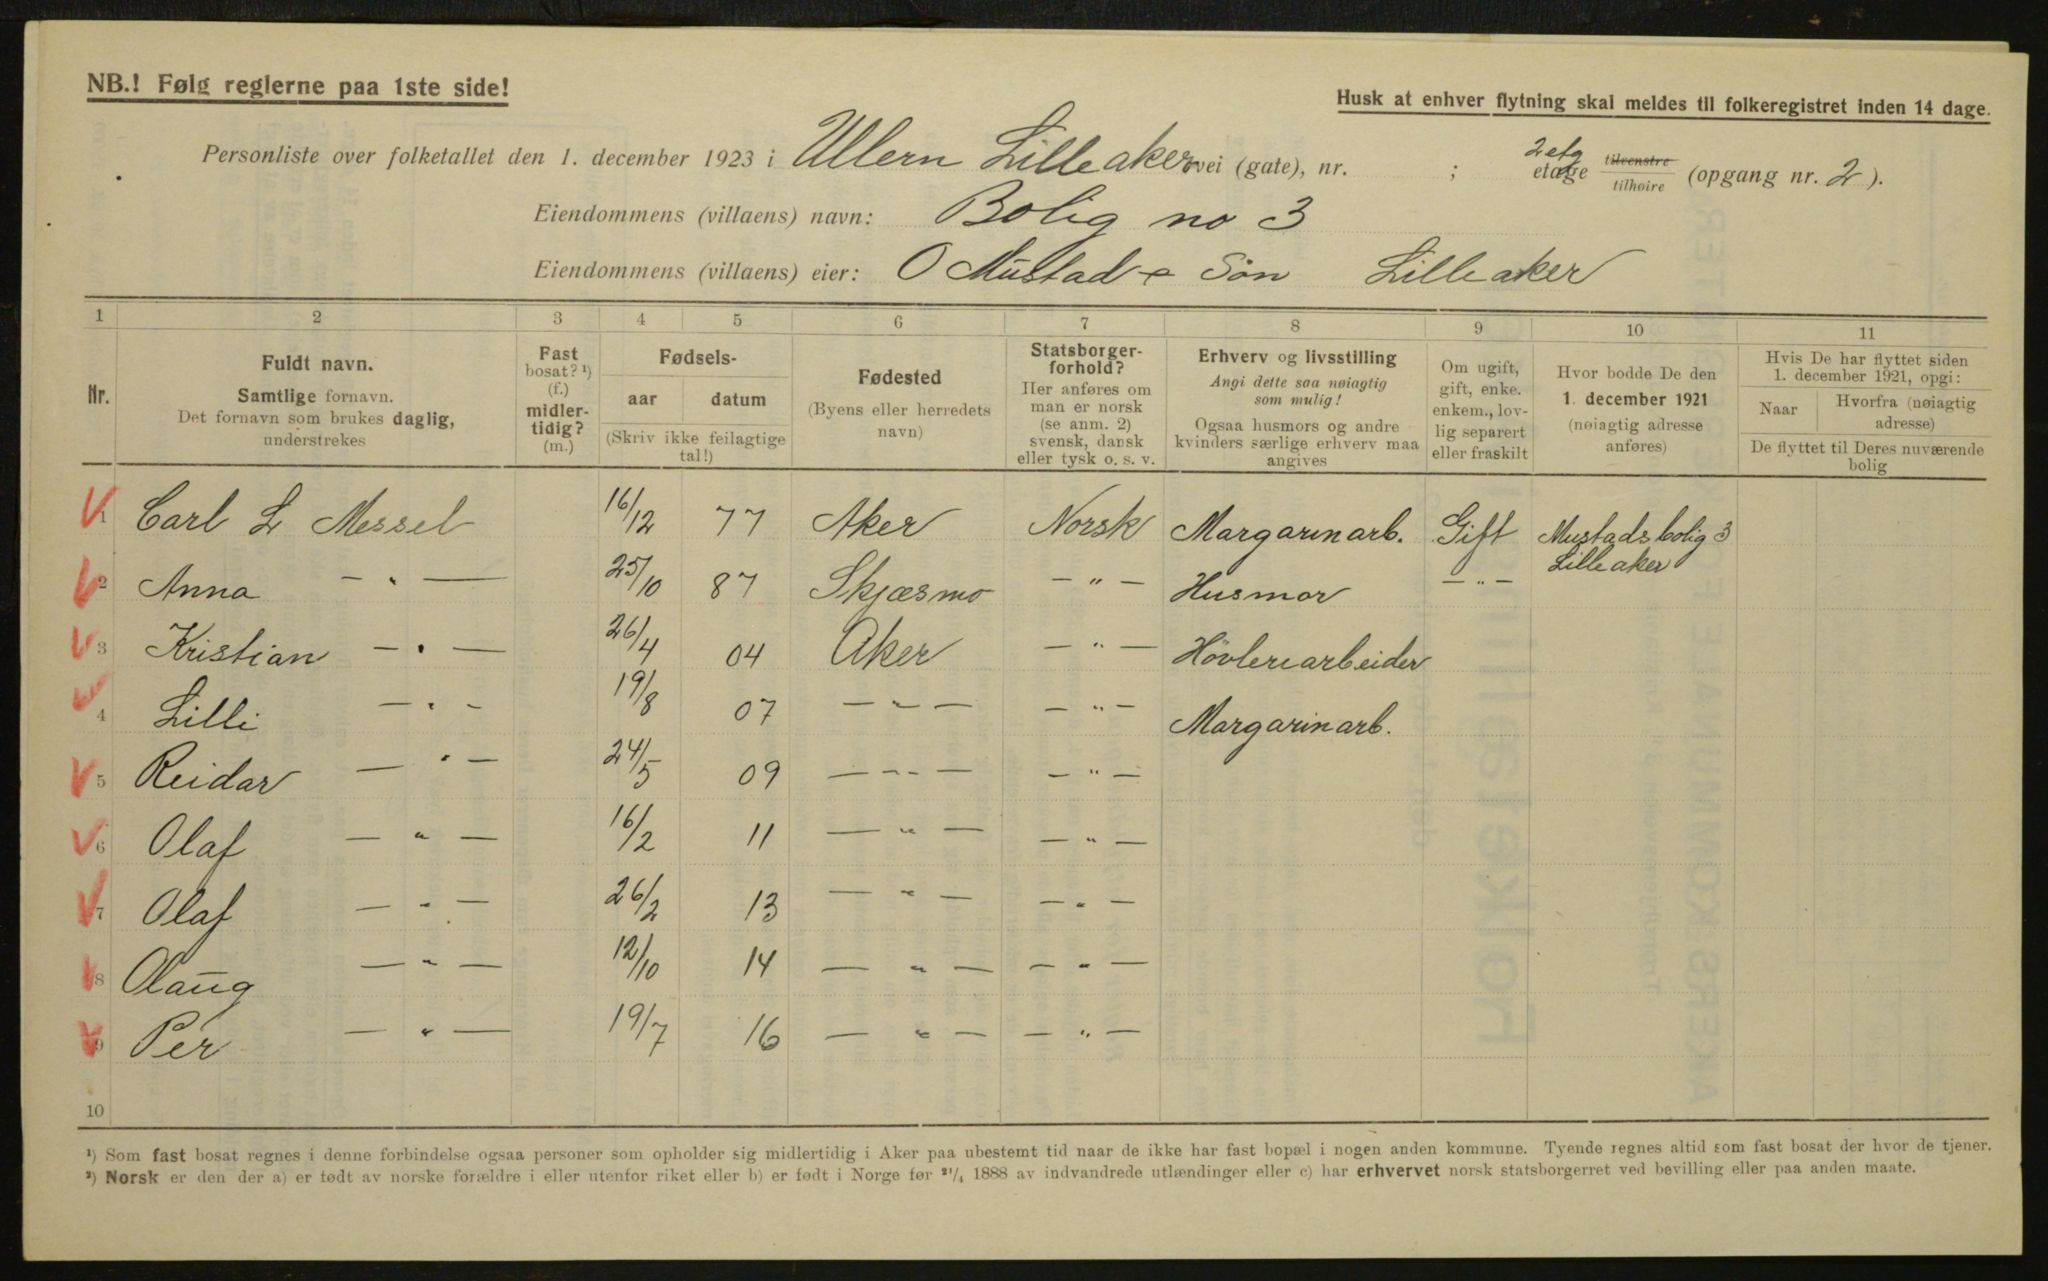 NB.! Følg reglerne paa 1ste side!
Husk at enhver flytning skal meldes til folkeregistret inden 14 dage.
Personliste over folketallet den 1. december 1923 i Ullern Lilleaker vei (gate), nr. ; 2 etg etage tilvenstre tilhøire (opgang nr. 2).
Eiendommens (villaens) navn: Bolig no 3
Eiendommens (villaens) eier: O Mustad & Søn Lilleaker
1 2 3 4 5 6 7 8 9 10 11
Nr.
Fuldt navn.
Samtlige fornavn.
Det fornavn som brukes daglig,
understrekes
Fast
bosat? ¹)
(f.)
midler-
tidig?
(m.)
Fødsels-
aar datum
(Skriv ikke feilagtige
tal!)
Fødested
(Byens eller herredets
navn)
Statsborger-
forhold?
Her anføres om
man er norsk
(se anm. 2)
svensk, dansk
eller tysk o. s. v.
Erhverv og livsstilling
Angi dette saa nøiagtig
som mulig!
Ogsaa husmors og andre
kvinders særlige erhverv maa
angives
Om ugift,
gift, enke.
enkem., lov-
lig separert
eller fraskilt
Hvor bodde De den
1. december 1921
(nøiagtig adresse
anføres)
Hvis De har flyttet siden
1. december 1921, opgi:
Naar
Hvorfra (nøiagtig
adresse)
De flyttet til Deres nuværende
bolig
1 Carl L Messel 16/12 77 Aker Norsk Margarinarb. Gift Mustads bolig 3
Lilleaker
2 Anna — „ — 25/10 87 Skjæsmo — „ — Husmor — „ —
3 Kristian — „ — 26/4 04 Aker — „ — Høvleriarbeider
4 Lilli — „ — 19/8 07 — „ — — „ — Margarinarb.
5 Reidar — „ — 24/5 09 — „ — — „ —
6 Olaf — „ — 16/2 11 — „ — — „ —
7 Olaf — „ — 26/2 13 — „ — — „ —
8 Olaug — „ — 12/10 14 — „ — — „ —
9 Per — „ — 19/7 16 — „ — — „ —
10
¹) Som fast bosat regnes i denne forbindelse ogsaa personer som opholder sig midlertidig i Aker paa ubestemt tid naar de ikke har fast bopæl i nogen anden kommune. Tyende regnes altid som fast bosat der hvor de tjener.
²) Norsk er den der a) er født av norske forældre i eller utenfor riket eller b) er født i Norge før ²¹/₄ 1888 av indvandrede utlændinger eller c) har erhvervet norsk statsborgerret ved bevilling eller paa anden maate.